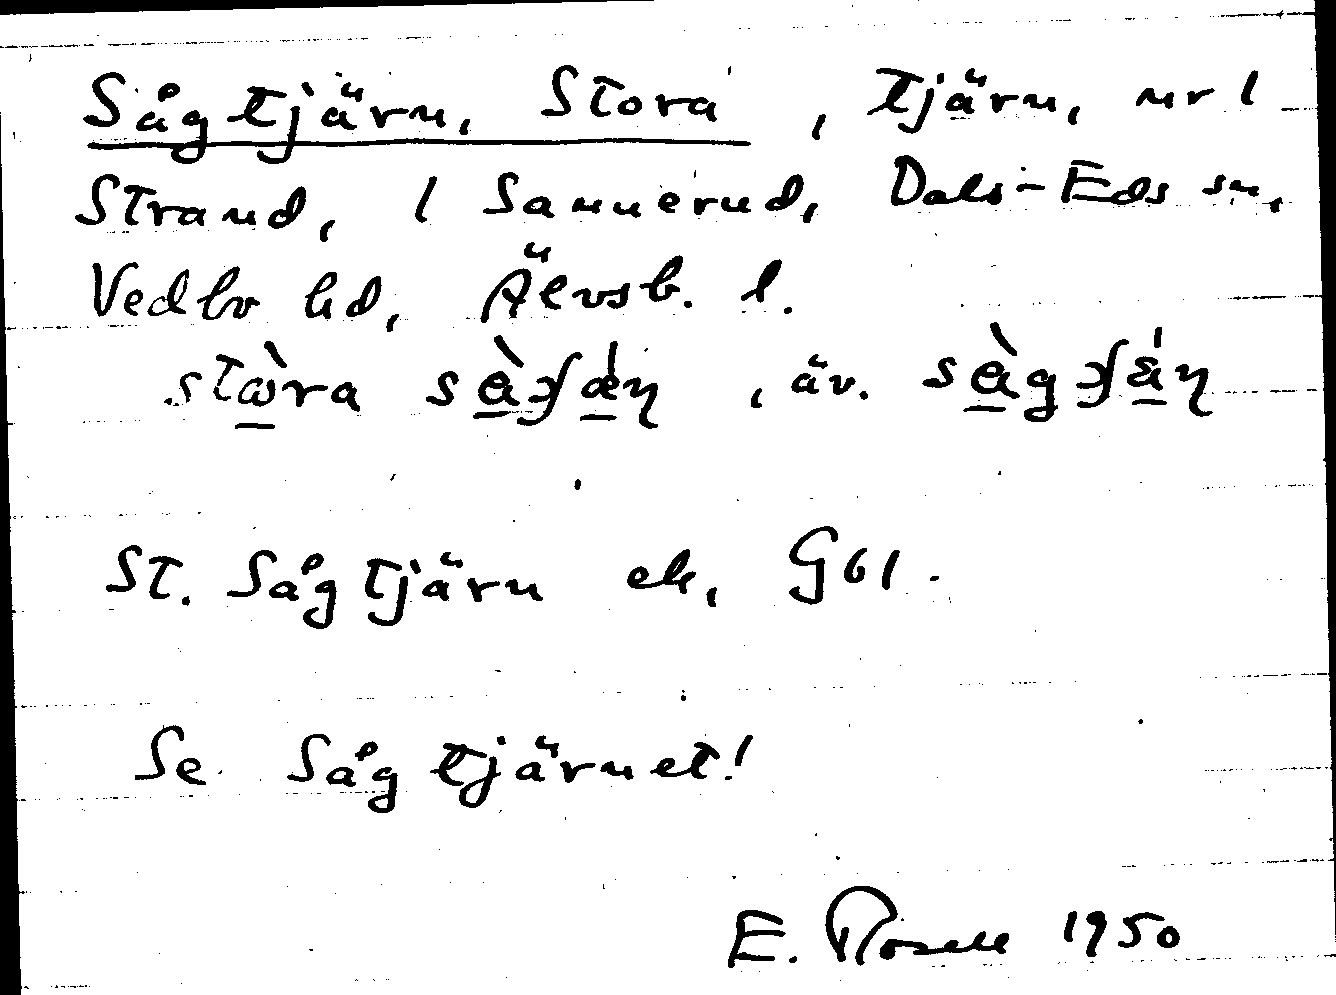 Sågtjärn, Stora, tjärn, nr 1
Strand, 1 Sannerud, Dals-Eds sn,
Vedbo hd, Älvsb. l.
, äv.
St. Sågtjärn ek, G61.
Se Sågtjärnet!
E. Rosell 1950